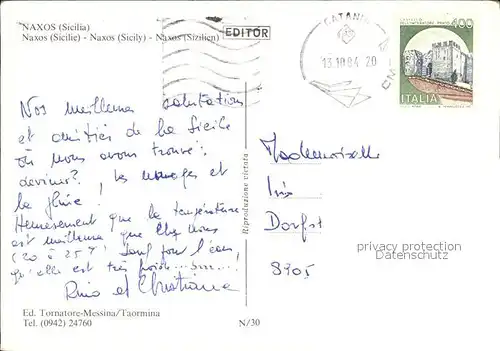 NAXOS (Sicilia)
Naxos (Sicilie) - Naxos (Sicily) - Naxos (Sizilien)
EDITOR
CATANIA
13.10.84 20
CASTELLO
400
ITALIA
Nos meilleures salutations
et amitiés de la Sicile
où nous avons trouvé:
devinez? les nuages et
la pluie!
Heureusement que la température
est meilleure que chez nous
(20 à 25°) Sauf pour l'eau,
qu'elle est très froide
Rino et Christiane
Riproduzione vietata
Mademoiselle
Iris
Dorfst
8305
privacy protection
Datenschutz
Ed. Tornatore-Messina/Taormina
Tel. (0942) 24760
N/30